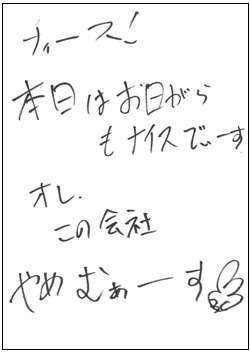 ナィース!
本日はお日がら
もナイスでぃーす
オレ.
この会社
やめ むぁーす